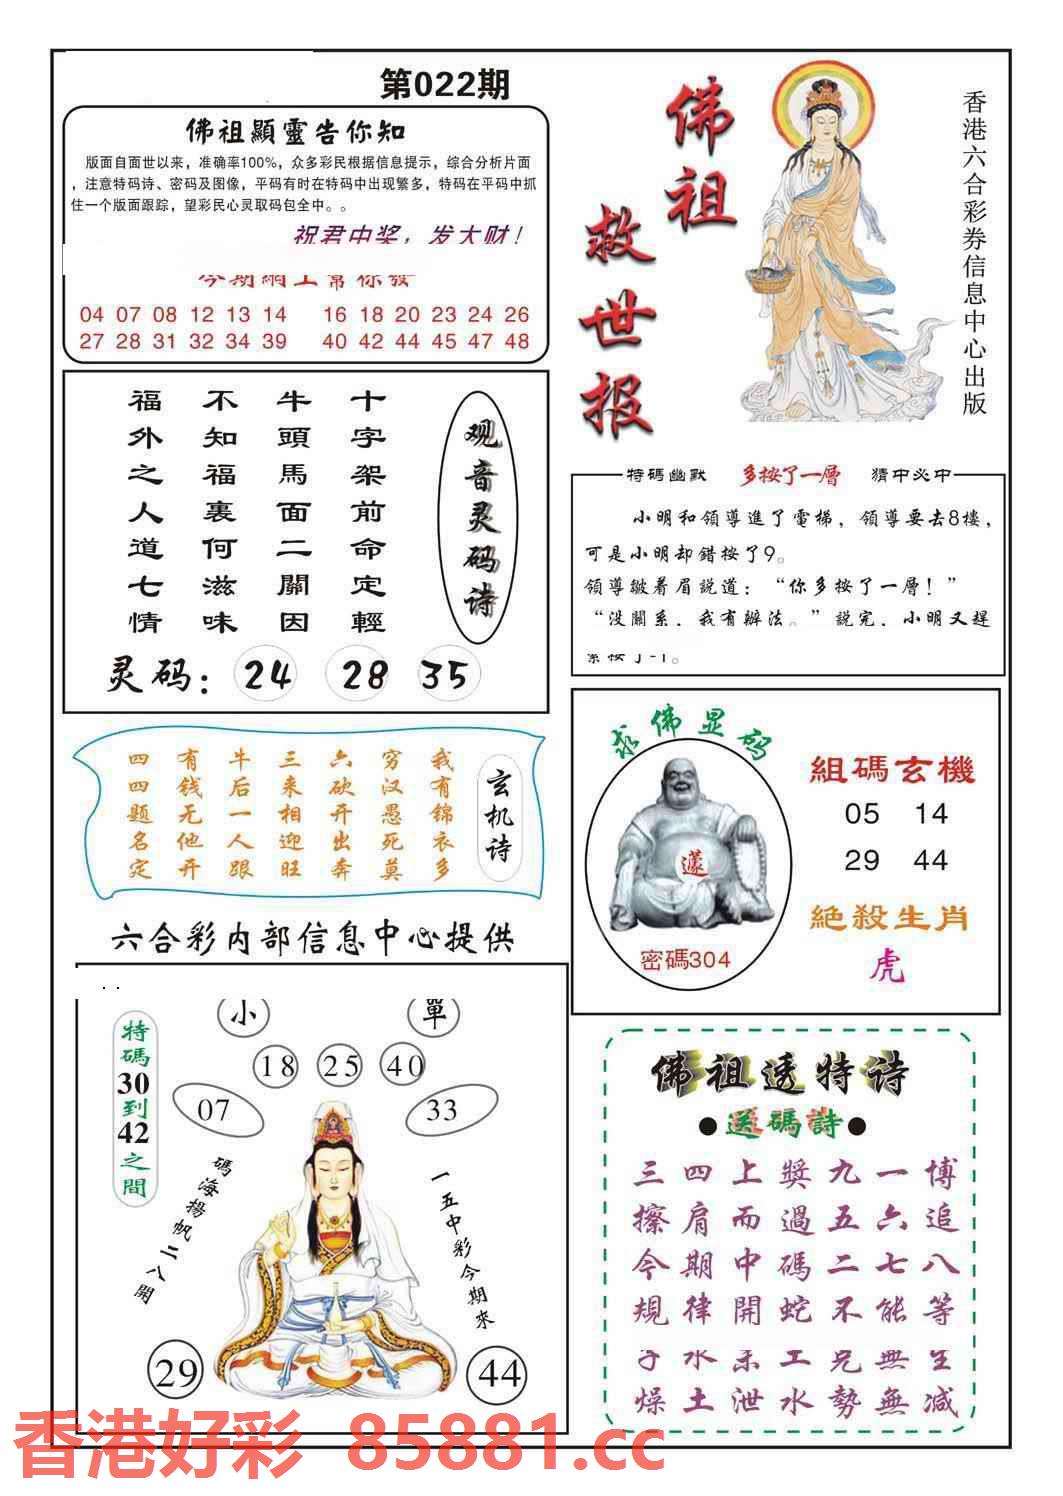 第022期
佛祖顯靈告你知
版面自面世以来，准确率100%，众多彩民根据信息提示，综合分析片面
，注意特码诗、密码及图像，平码有时在特码中出现繁多，特码在平码中抓
住一个版面跟踪，望彩民心灵取码包全中。。
祝君中奖，发大财！
今期網上幫你發
04 07 08 12 13 14 16 18 20 23 24 26
27 28 31 32 34 39 40 42 44 45 47 48
佛祖
救世报
香港六合彩券信息中心出版
观音灵码诗
十字架前命定輕
牛頭馬面二關因
不知福裏何滋味
福外之人道七情
灵码：24 28 35
特碼幽默 多按了一層 猜中必中
小明和領導進了電梯，領導要去8樓，
可是小明却錯按了9。
領導皺着眉説道：“你多按了一層！”
“没關系，我有辦法。”説完，小明又趕
玄机诗
我有锦衣多
穷汉愚死莫
六砍开出奔
三来相迎旺
牛后一人跟
有钱无他开
四四题名定
六合彩内部信息中心提供
求佛显码
密碼304
組碼玄機
05 14
29 44
絕殺生肖
虎
小 單
18 25 40
07 33
特碼30到42之間
碼海揚帆二八開
一五中彩今期來
29 44
佛祖透特诗
●送碼詩●
三四上獎九一博
擦肩而過五六追
今期中碼二七八
規律開蛇不能等
燥土泄水勢無減
香港好彩 85881.cc